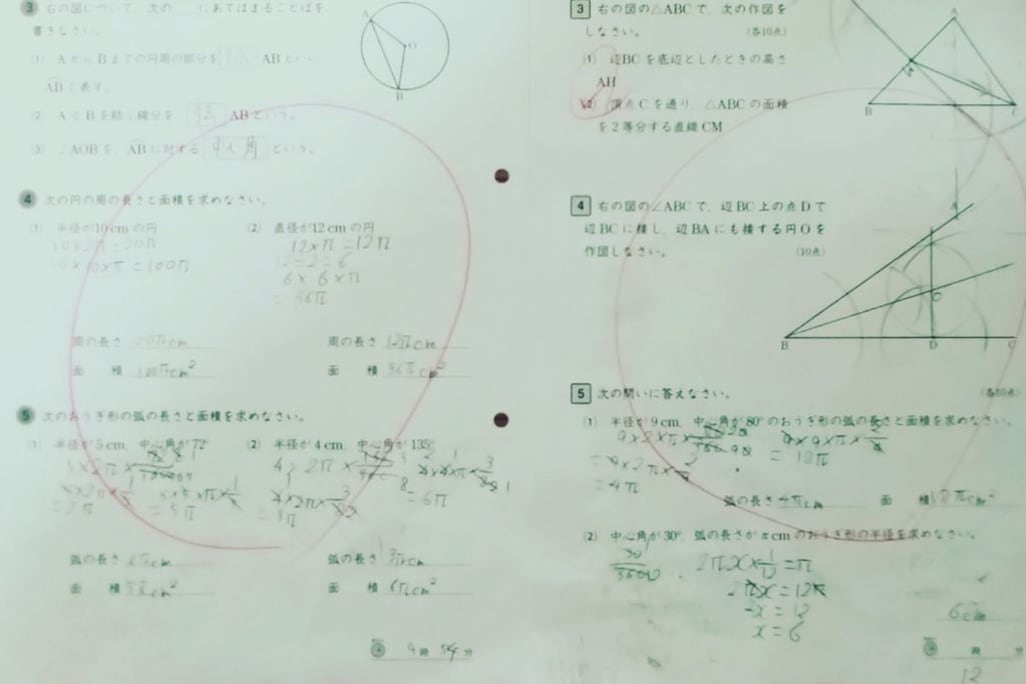 3 右の図について、次の にあてはまることばを
書きなさい。
(1) AからBまでの円周の部分を ABといい、
ABと表す。
(2) AとBを結ぶ線分を、弦 ABという。
(3) ∠AOBを、ABに対する 中心角 という。
A
O
B
4 次の円の周の長さと面積を求めなさい。
(1) 半径が10cmの円
10×2π=20π
10×10×π=100π
周の長さ 20πcm
面積 100πcm²
(2) 直径が12cmの円
12×π=12π
12÷2=6
6×6×π
=36π
周の長さ 12πcm
面積 36πcm²
5 次のおうぎ形の弧の長さと面積を求めなさい。
(1) 半径が5cm、中心角が72°
5×2π×
=2π
=5π
弧の長さ 2πcm
面積 5πcm²
(2) 半径が4cm、中心角が135°
4×2π×
=3π
=6π
弧の長さ 3πcm
面積 6πcm²
9時 54分
3 右の図の△ABCで、次の作図を
しなさい。 (各10点)
(1) 辺BCを底辺としたときの高さ
AH
(2) 頂点Cを通り、△ABCの面積
を2等分する直線CM
A
B
C
4 右の図の∠ABCで、辺BC上の点Dで
辺BCに接し、辺BAにも接する円Oを
作図しなさい。 (10点)
A
O
B
D
C
5 次の問いに答えなさい。 (各10点)
(1) 半径が9cm、中心角が80°のおうぎ形の弧の長さと面積を求めなさい。
9×2×π×
=9×2π×
=4π
9×9×π×
弧の長さ 4πcm 面積
(2) 中心角が30°、弧の長さがπcmのおうぎ形の半径を求めなさい。
30/360
2πx×1/12=π
2πx=12π
x=6
6cm
時 分
12